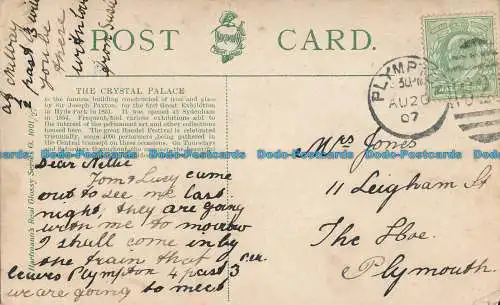 POST CARD.
THE CRYSTAL PALACE
is the famous building constructed of iron and glass
by Sir Joseph Paxton, for the first Great Exhibition
in Hyde Park in 1851. It was opened at Sydenham
in 1854. Frequent
various exhibitions add to
the interest of the permanent art and other collections
housed here. The great Handel Festival is celebrated
Triennially, some 4000 performers being gathered in
the Central transept on these occasions. On Thursday
Dear Nellie
Tom & Lucy came
out to see me last
night, they are going
with me to morrow
I shall come in by
the train that
leaves Plympton 4 past 3 P.M.
we are going to meet
at
1/2 past 3 will
you be
there
with love
from
Mrs Jones
11 Leigham St
The Hoe
Plymouth
PLYMP
AU 20
07
Bdo-Postcards.com